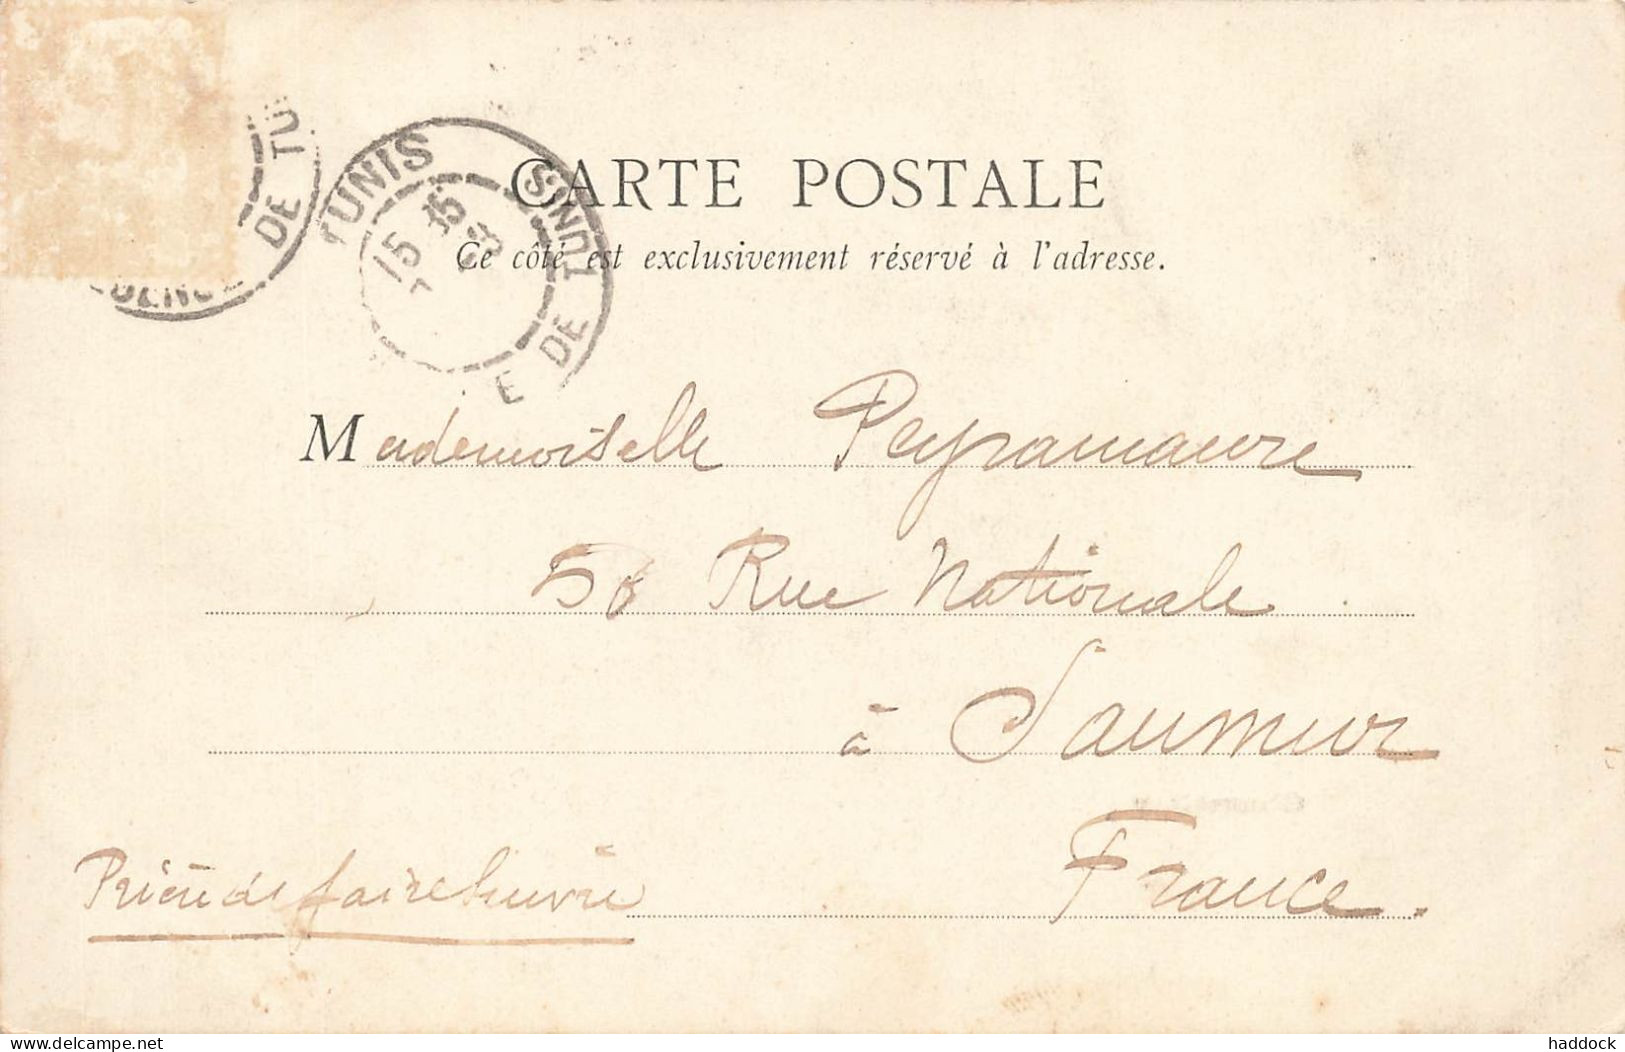 TUNIS
15
DE TUNIS
DE TU
CARTE POSTALE
Ce côté est exclusivement réservé à l'adresse.
Mademoiselle Peyramaure
56 Rue Nationale
à Saumur
France.
Prière de faire suivre
haddock
delcampe.net